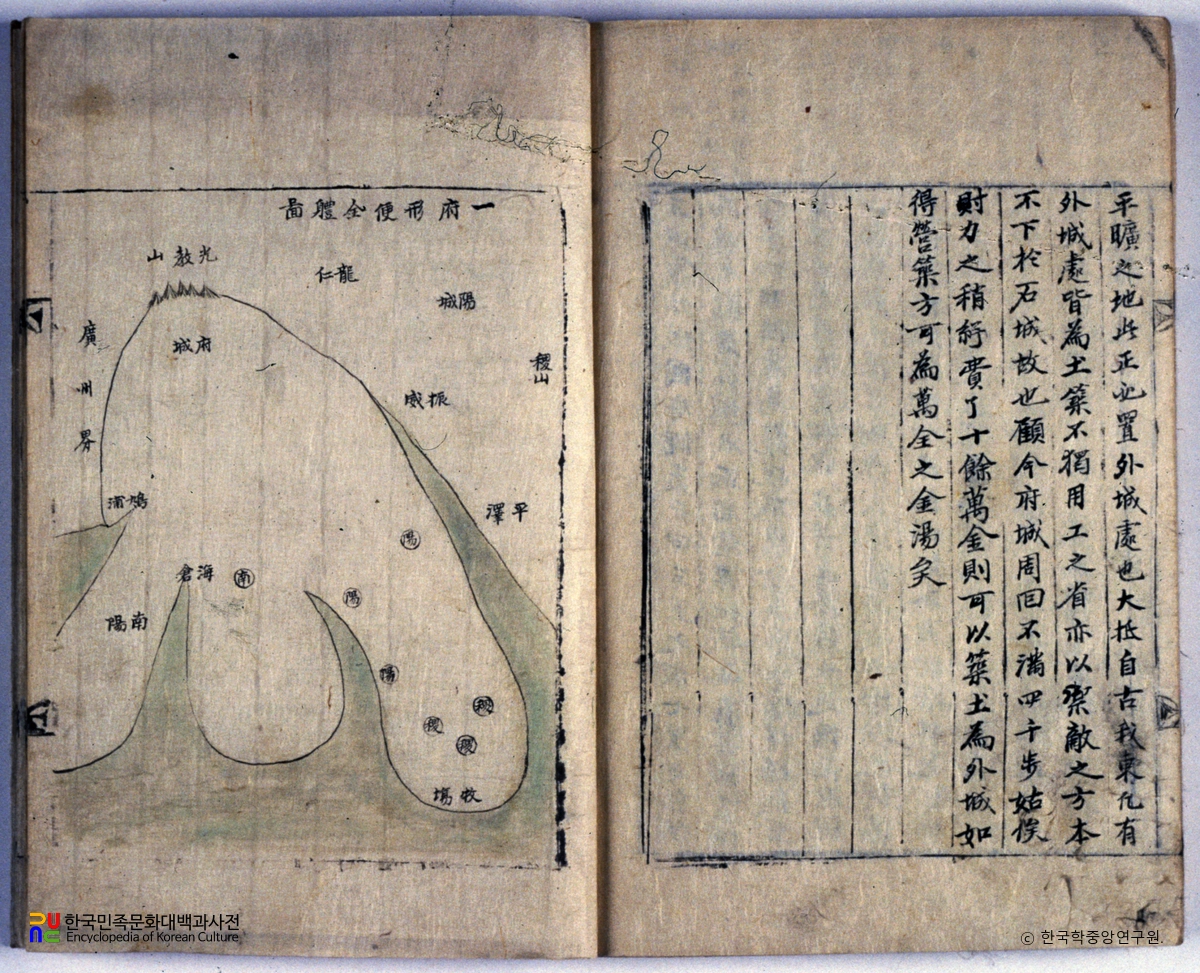 平曠之地此正必置外城處也大抵自古我東凡有
外城處皆為土築不獨用工之省亦以禦敵之方本
不下於石城故也顧今府城周回不滿四千步姑俟
財力之稍紓費了十餘萬金則可以築土為外城如
得營築方可為萬全之金湯矣
一府形便全體啚
光教山
龍仁
陽城
稷山
府城
廣州界
振威
平澤
鳩浦
海倉
南
陽
陽
陽
南陽
稷
稷
稷
牧場
한국민족문화대백과사전
Encyclopedia of Korean Culture
© 한국학중앙연구원